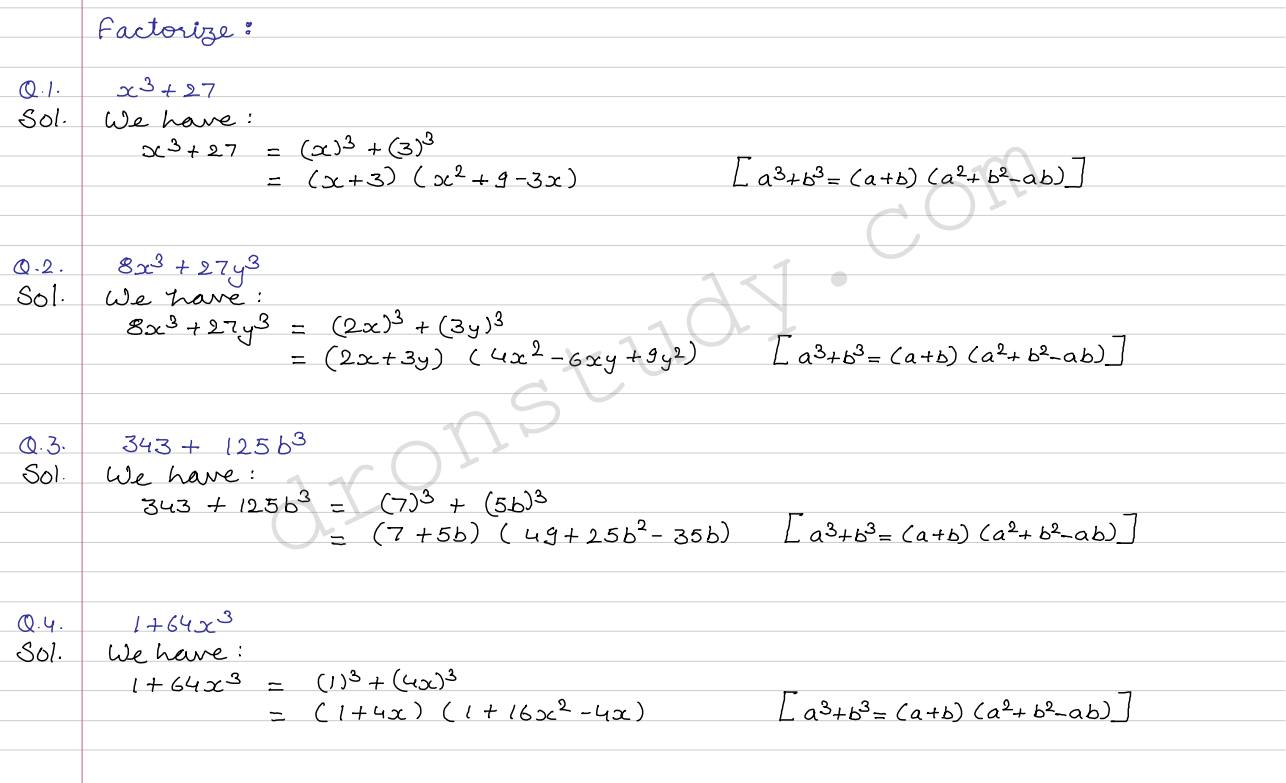 Factorize :
Q.1. x³ + 27
Sol. We have :
x³ + 27 = (x)³ + (3)³
= (x+3) (x² + 9 - 3x) [a³+b³ = (a+b) (a²+b²-ab)]
Q.2. 8x³ + 27y³
Sol. We have :
8x³ + 27y³ = (2x)³ + (3y)³
= (2x+3y) (4x² - 6xy + 9y²) [a³+b³ = (a+b) (a²+b²-ab)]
Q.3. 343 + 125b³
Sol. We have :
343 + 125b³ = (7)³ + (5b)³
= (7+5b) (49 + 25b² - 35b) [a³+b³ = (a+b) (a²+b²-ab)]
Q.4. 1+64x³
Sol. We have :
1 + 64x³ = (1)³ + (4x)³
= (1+4x) (1 + 16x² - 4x) [a³+b³ = (a+b) (a²+b²-ab)]
dronstudy.com